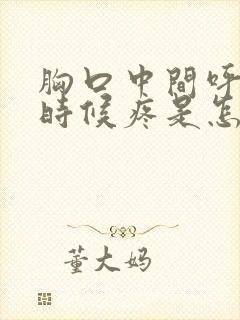 胸口中間呼
時候疼是怎
董大妈